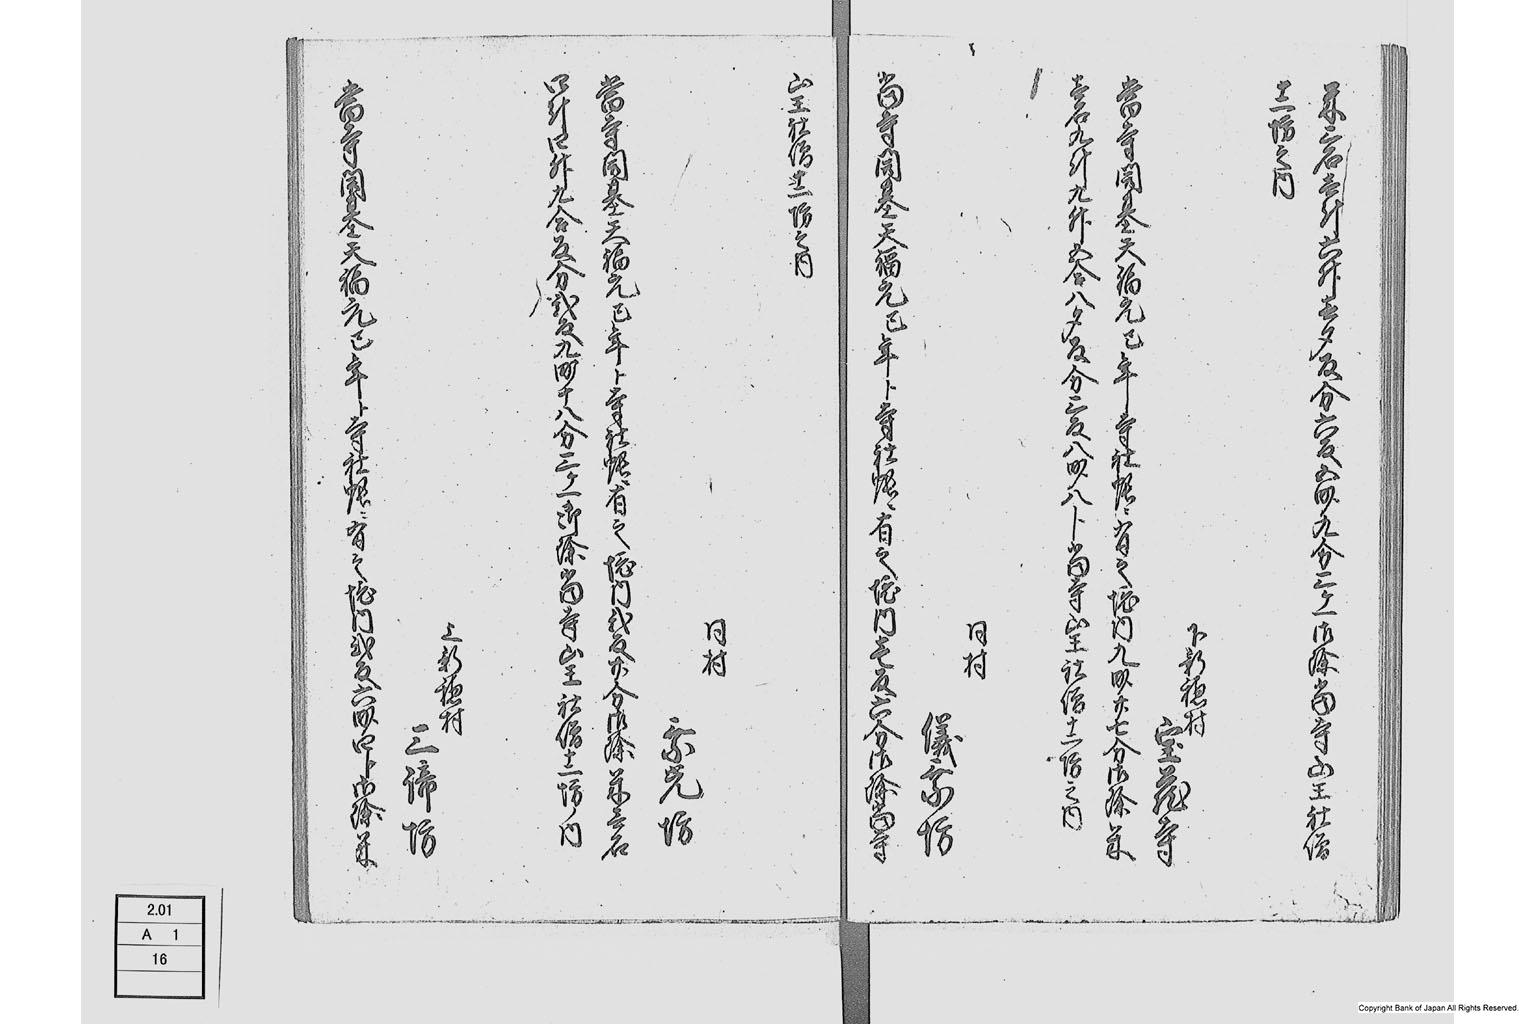 米三石壱斗六升壱夕反分六反五畝九分三ケ一御除当寺山王社僧
十二坊之内
下新穂村
宝蔵寺
当寺開基天福元巳年ト寺社帳ニ有之境内九畝廿七分御除米
壱石九斗九升五合八夕反分三反八畝八ト当寺山王社僧十二坊之内
同村
儀宗坊
当寺開基天福元巳年ト寺社帳ニ有之境内壱反六分御除当寺
山王社僧十二坊之内
同村
宗光坊
当寺開基天福元巳年ト寺社帳ニ有之境内弐反廿分御除米三石
四斗四升九合反分弐反九畝十八分三ケ一御除当寺山王社僧十二坊ノ内
上新穂村
三諦坊
当寺開基天福元巳年ト寺社帳ニ有之境内弐反六畝四ト御除米
2.01
A 1
16
Copyright Bank of Japan All Rights Reserved.